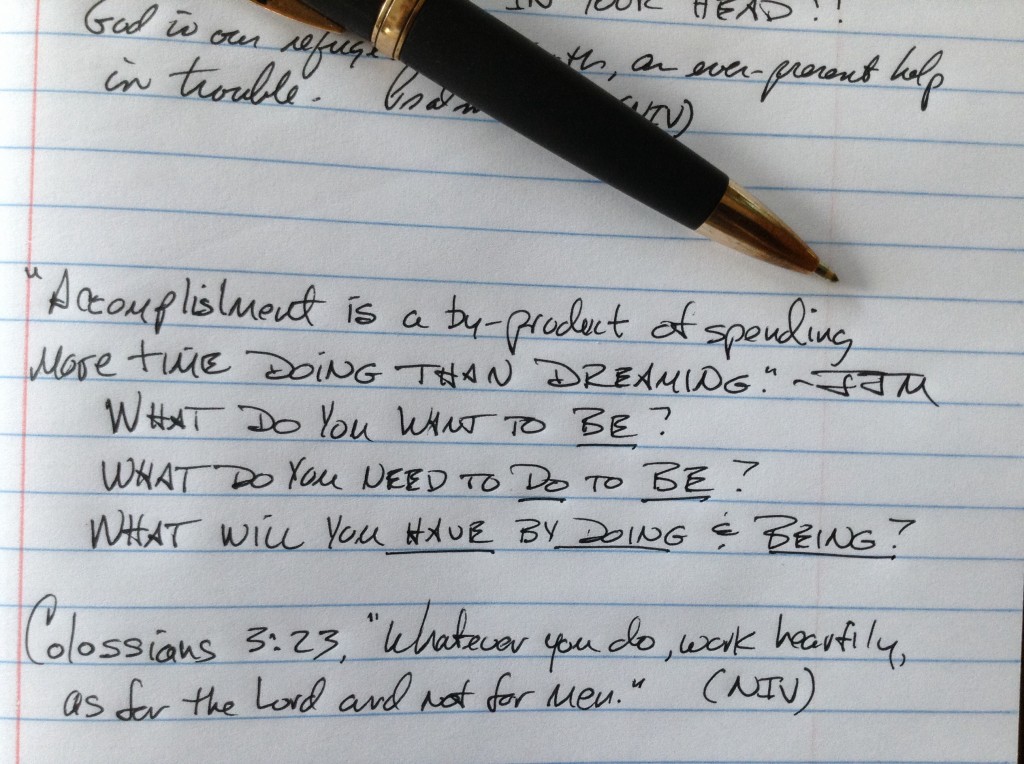 IN YOUR HEAD!!
God is our refuge th, an ever-present help
in trouble. Psalm (NIV)
"Accomplishment is a by-product of spending
More time DOING THAN DREAMING." ~JJM
WHAT DO YOU WANT TO BE?
WHAT DO YOU NEED TO DO TO BE?
WHAT WILL YOU HAVE BY DOING & BEING?
Colossians 3:23, "Whatever you do, work heartily,
as for the Lord and not for men." (NIV)